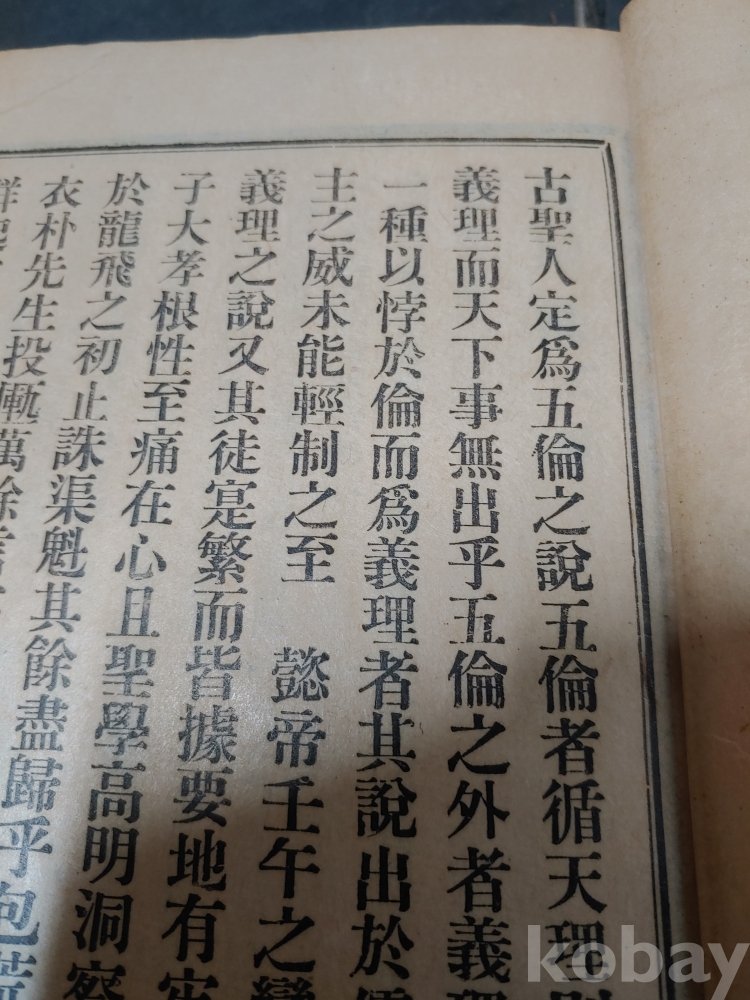 古聖人定爲五倫之說五倫者循天理
義理而天下事無出乎五倫之外者義
一種以悖於倫而爲義理者其說出於
主之威未能輕制之至 懿帝壬午之變
義理之說又其徒寔繁而皆據要地有
子大孝根性至痛在心且聖學高明洞察
於龍飛之初止誅渠魁其餘盡歸乎包荒
衣朴先生投匭萬餘言
kobay